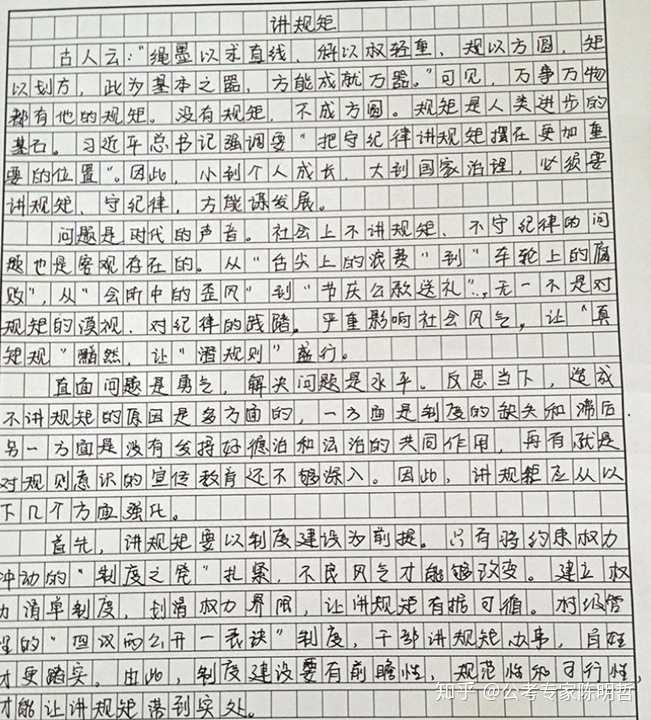 讲规矩
古人云:"绳墨以求直线,斛以权轻重,规以方圆,矩
以划方,此为基本之器,方能成就万器。"可见,万事万物
都有他的规矩。没有规矩,不成方圆。规矩是人类进步的
基石。习近平总书记强调要"把守纪律讲规矩摆在更加重
要的位置"。因此,小到个人成长,大到国家治理,必须要
讲规矩、守纪律,方能谋发展。
问题是时代的声音。社会上不讲规矩、不守纪律的问
题也是客观存在的。从"舌尖上的浪费"到"车轮上的腐
败",从"会所中的歪风"到"节庆公款送礼"…,无一不是对
规矩的漠视、对纪律的践踏。严重影响社会风气,让"真
矩规"黯然,让"潜规则"盛行。
直面问题是勇气,解决问题是水平。反思当下,造成
不讲规矩的原因是多方面的,一方面是制度的缺失和滞后,
另一方面是没有发挥好德治和法治的共同作用,再有就是
对规则意识的宣传教育还不够深入。因此,讲规矩应从以
下几个方面强化。
首先,讲规矩要以制度建设为前提。只有将约束权力
冲动的"制度之笼"扎紧,不良风气才能够改变。建立权
力清单制度,划清权力界限,让讲规矩有据可循。村级管
理的"四议两公开一表决"制度,干部讲规矩办事,百姓
才更踏实。由此,制度建设要有前瞻性,规范性和可行性,
才能让讲规矩落到实处。
知乎 @公考专家陈明哲